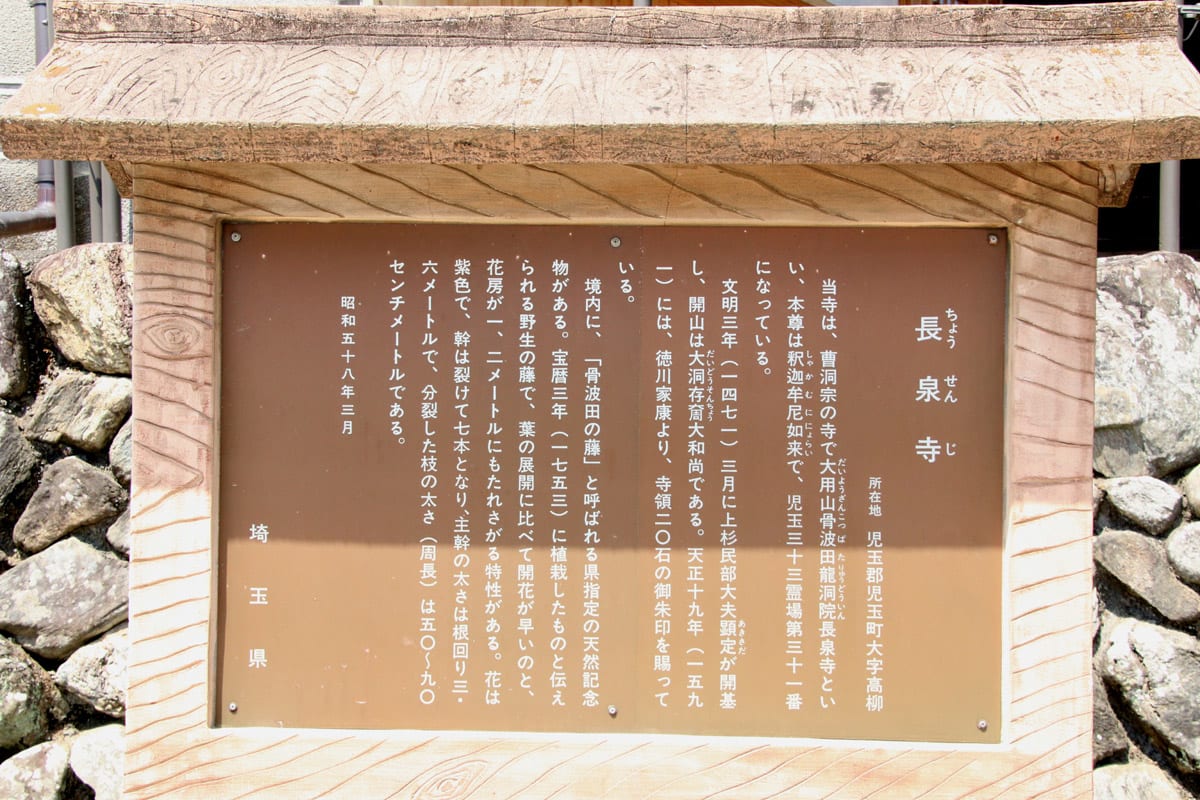 長泉寺
ちょうせんじ
所在地　児玉郡児玉町大字高柳
当寺は、曹洞宗の寺で大用山骨波田龍洞院長泉寺とい
だいようざんこつばたりゅうどういん
い、本尊は釈迦牟尼如来で、児玉三十三霊場第三十一番
しゃかむににょらい
になっている。
文明三年（一四七一）三月に上杉民部大夫顕定が開基
あきさだ
し、開山は大洞存奝大和尚である。天正十九年（一五九
だいどうそんちょう
一）には、徳川家康より、寺領二〇石の御朱印を賜って
いる。
境内に、「骨波田の藤」と呼ばれる県指定の天然記念
物がある。宝暦三年（一七五三）に植栽したものと伝え
られる野生の藤で、葉の展開に比べて開花が早いのと、
花房が一、二メートルにもたれさがる特性がある。花は
紫色で、幹は裂けて七本となり、主幹の太さは根回り三・
六メートルで、分裂した枝の太さ（周長）は五〇〜九〇
センチメートルである。
昭和五十八年三月
埼玉県